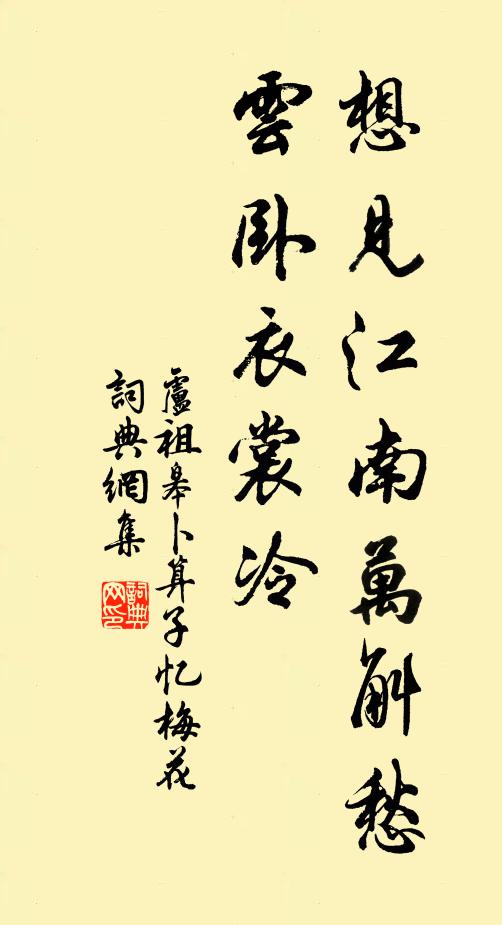 想見江南萬斛愁
雲卧衣裳冷
盧祖皋卜算子忆梅花
詞典網集
詞典网印